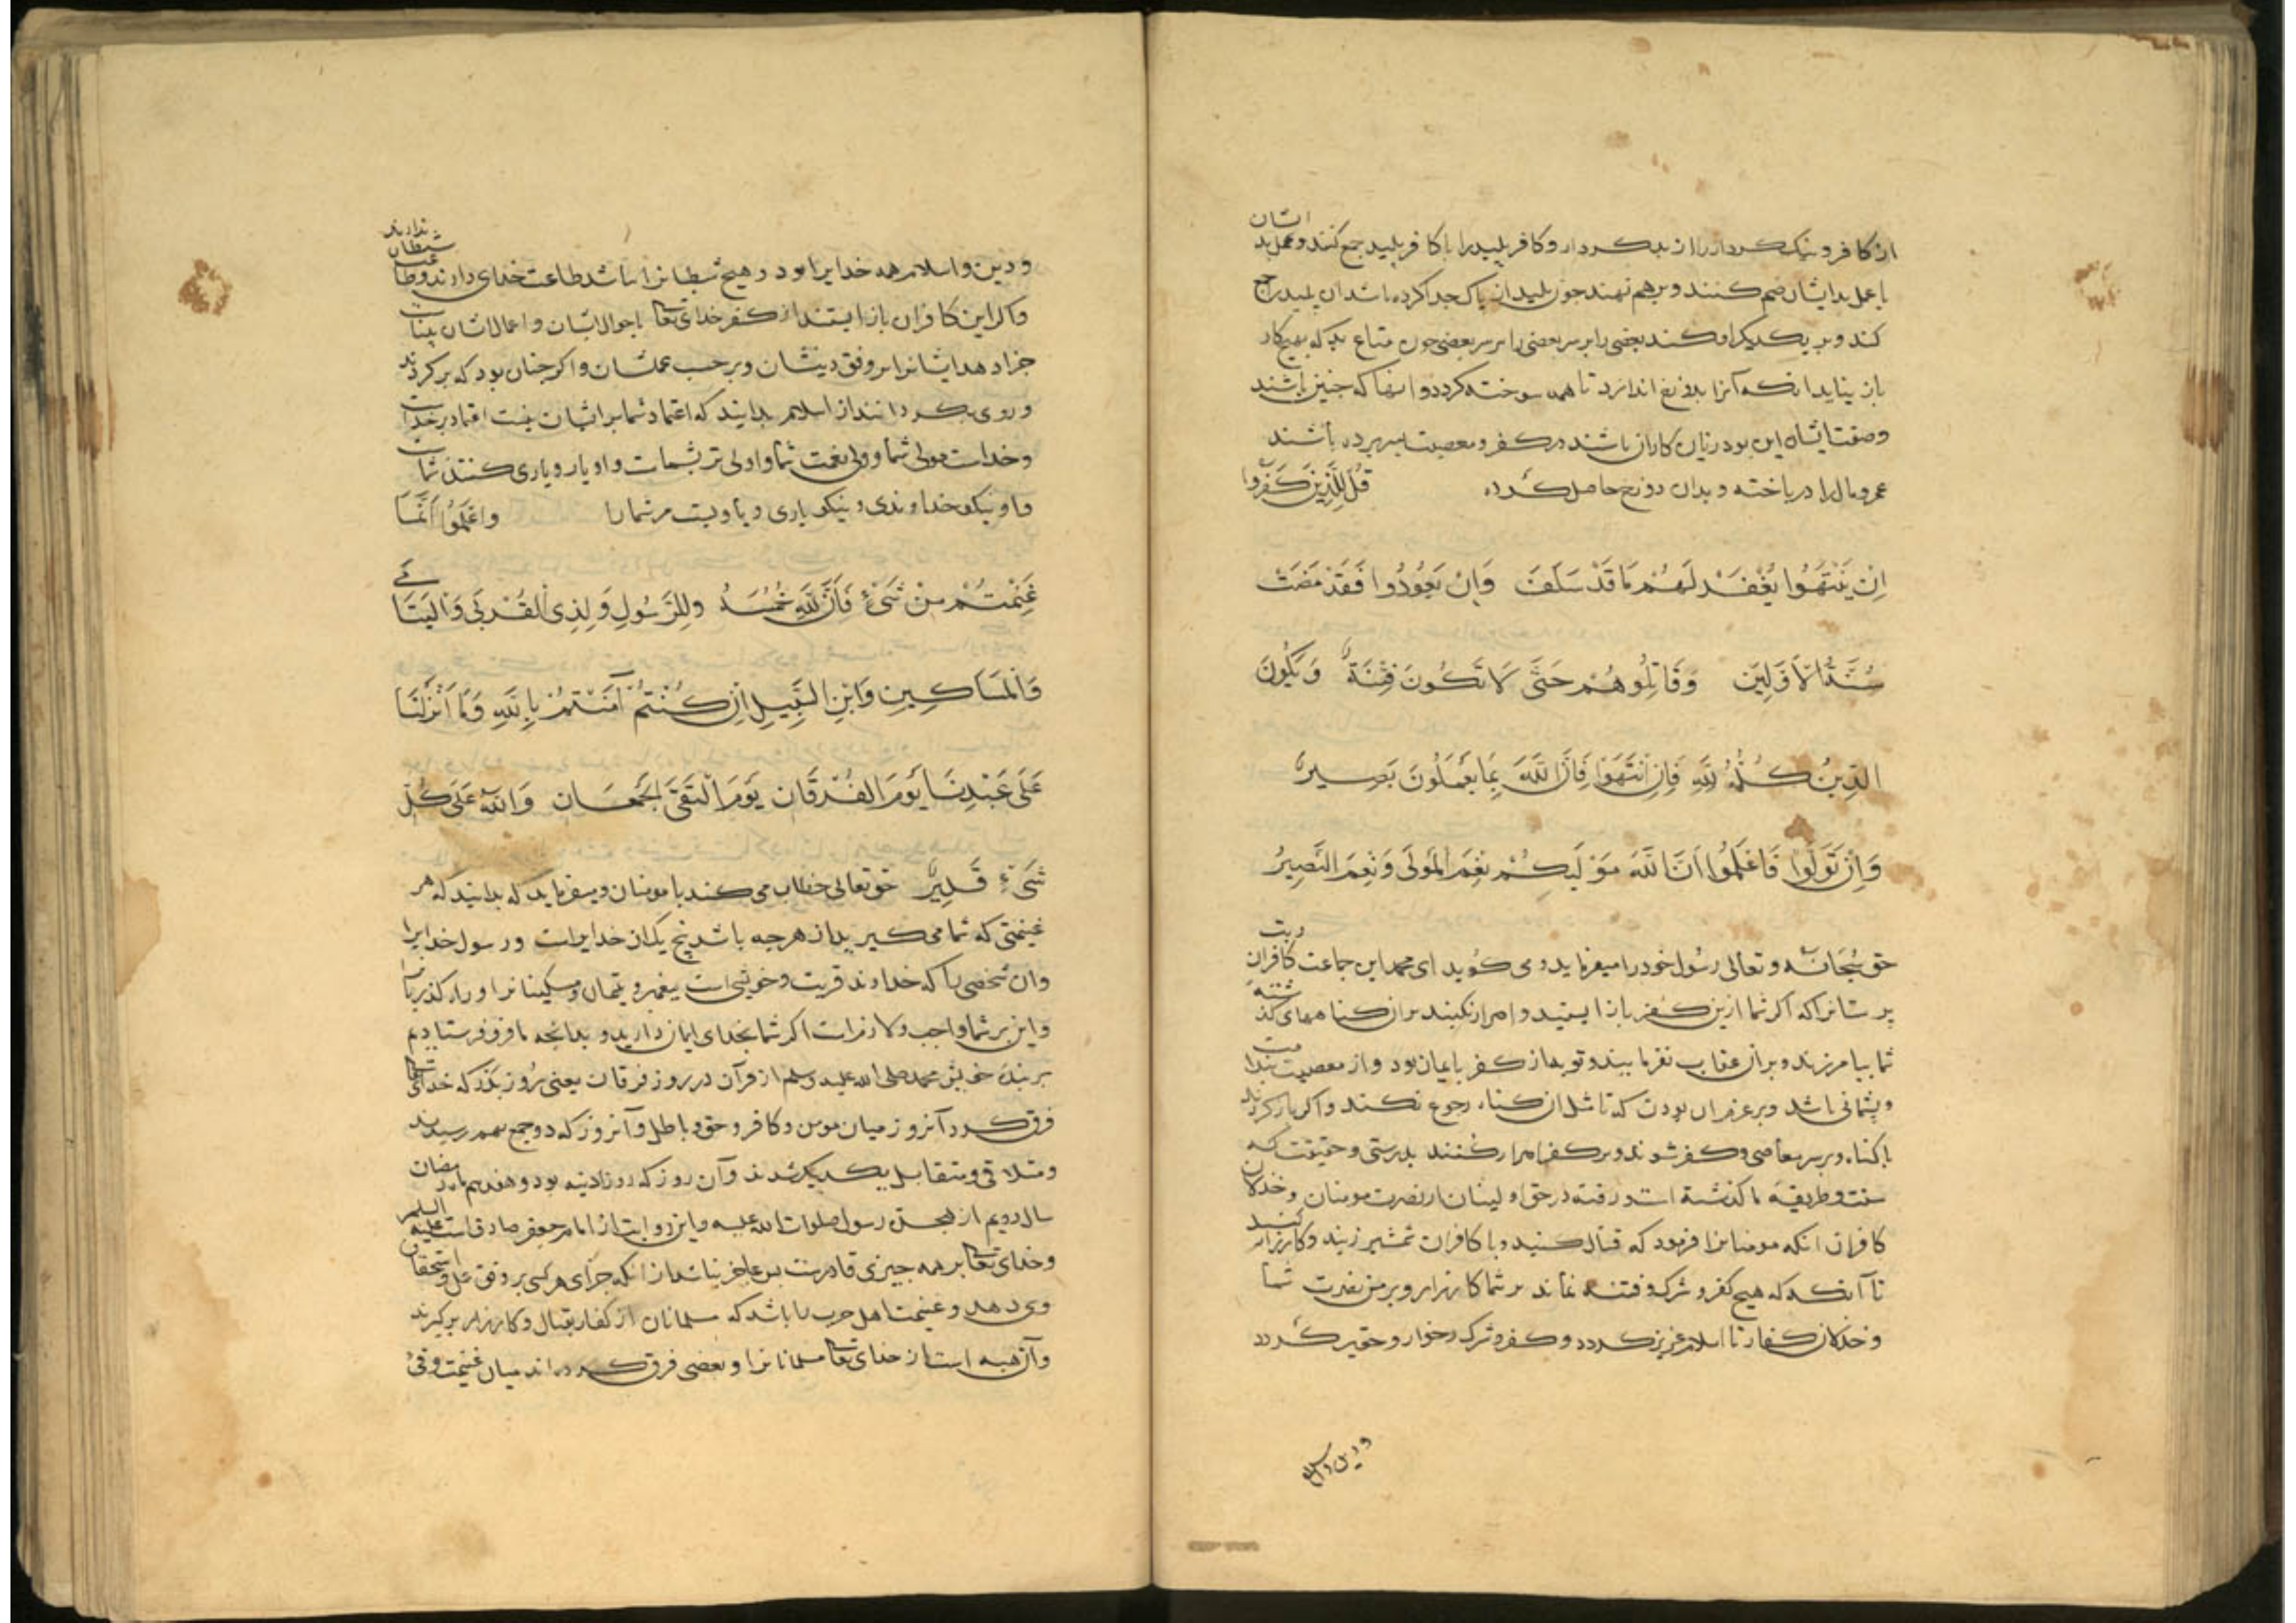 از کافر و نیک کردار را از بد کردار و کافر پلید را با کافر پلید جمع کنند و عمل بد ایشان
با عمل بد ایشان ضم کنند و بر هم نهند چون پلید از پاک جدا کرده باشد آن پلید را جمع
کند و بر یکدیگر افکند بعضی را بر سر بعضی چون متاع بد که بهیچ کار
باز نیاید آنکه آنرا بدوزخ اندازد تا همه سوخته گردد و اینها که چنین باشند
و صفت ایشان این بود زیان کاران باشند در کفر و معصیت بسر برده باشند
عمر و مال را در باخته و بدان دوزخ حاصل کرده قُل لِلَّذِينَ كَفَرُوا
اِنْ يَنْتَهُوا يُغْفَرْ لَهُمْ مَا قَدْ سَلَفَ وَاِنْ يَعُودُوا فَقَدْ مَضَتْ
سُنَّةُ الْاَوَّلِينَ وَقَاتِلُوهُمْ حَتَّى لَا تَكُونَ فِتْنَةٌ وَيَكُونَ
الدِّينُ كُلُّهُ لِلَّهِ فَاِنِ انْتَهَوْا فَاِنَّ اللَّهَ بِمَا يَعْمَلُونَ بَصِيرٌ
وَاِنْ تَوَلَّوْا فَاعْلَمُوا اَنَّ اللَّهَ مَوْلَيكُمْ نِعْمَ الْمَوْلَى وَنِعْمَ النَّصِيرُ
حق سُبحانه و تعالی رسول خود را میفرماید و می گوید ای محمد این جماعت کافران و بت
پرستانرا که اگر شما ازین کفر باز ایستید و اصرار نکنید بر آن گناههای گذشته
شما بیامرزند و بر آن عقاب نفرمایند و توبه از کفر بایمان بود و از معصیت بندامت
و پشمانی باشد و بر عزم آن بودن که با مثل آن گناه رجوع نکند و اگر باز گردند
با گناه و بر سر معاصی و کفر شوند و بر کفر اصرار کنند بدرستی و حقیقت که
سنت و طریقه ما گذشته است و رفته در حق اولینان از نصرت مومنان و خذلان
کافران آنکه مومنانرا فرمود که قتال کنید و با کافران شمشیر زنید و کارزار کنید
تا آنکه که هیچ کفر و شرک و فتنه نماند بر شما کارزار و بر من نصرت شما
و خذلان کفار تا اسلام عزیز گردد و کفر و شرک خوار و حقیر گردد
و دین و اسلام
و دین و اسلام همه خدایرا بود و هیچ شیطانرا نباشد طاعت خدای دارند و طاعت شیطان ندارند
و اگر این کافران باز ایستند از کفر خدای تعالی باحوال ایشان و اعمال ایشان بیناست
جزا دهد ایشانرا بر وفق دینشان و بر حسب عملشان و اگر چنان بود که برگردند
و روی بگردانند از اسلام بدانید که اعتماد شما بر ایشان نیست اعتماد بر خداست
و خداست مولی شما و ولی نعمت شما و اولی تر بشماست و او یار و یاری کننده شماست
و او نیکو خداوندی و نیکو یاری و یاوریست مر شما را وَاعْلَمُوا اَنَّمَا
غَنِمْتُمْ مِنْ شَيْءٍ فَاَنَّ لِلَّهِ خُمُسَهُ وَلِلرَّسُولِ وَلِذِي الْقُرْبَى وَالْيَتَامَى
وَالْمَسَاكِينِ وَابْنِ السَّبِيلِ اِنْ كُنْتُمْ آمَنْتُمْ بِاللَّهِ وَمَا اَنْزَلْنَا
عَلَى عَبْدِنَا يَوْمَ الْفُرْقَانِ يَوْمَ الْتَقَى الْجَمْعَانِ وَاللَّهُ عَلَى كُلِّ
شَيْءٍ قَدِيرٌ حق تعالی خطاب می کند با مومنان و میفرماید که بدانید که هر
غنیمتی که شما می گیرید از هر چه باشد پنج یک آن خدایراست و رسول خدایرا
و آن شخصی را که خداوند قربت و خویشی است بپیغمبر و یتیمان و مسکینانرا و راه گذریانرا
و این بر شما واجب و لازمست اگر شما بخدای ایمان دارید و بدانچه ما فرو فرستادیم
بر بنده خویش محمد صلی الله علیه وسلم از قرآن در روز فرقان یعنی روز بدر که خدای تعالی
فرق کرد آنروز میان مومن و کافر و حق و باطل و آنروز که دو جمع بهم رسیدند
و متلاقی و متقابل یکدیگر شدند و آن روز که روز آدینه بود و هفدهم ماه رمضان
سال دویم از هجرت رسول صلوات الله علیه و این روایت از امام جعفر صادق است علیه السلم
و خدای تعالی بر همه چیزی قادرست پس عاجز نباشد از آنکه جزای هر کسی بر وفق عمل و استحقاق
وی دهد و غنیمت اهل حرب را باشد که مسلمانان از کفار بقتال و کارزار برگیرند
و آن هبه است از خدای تعالی مسلمانانرا و بعضی فرق کرده اند میان غنیمت و فیء